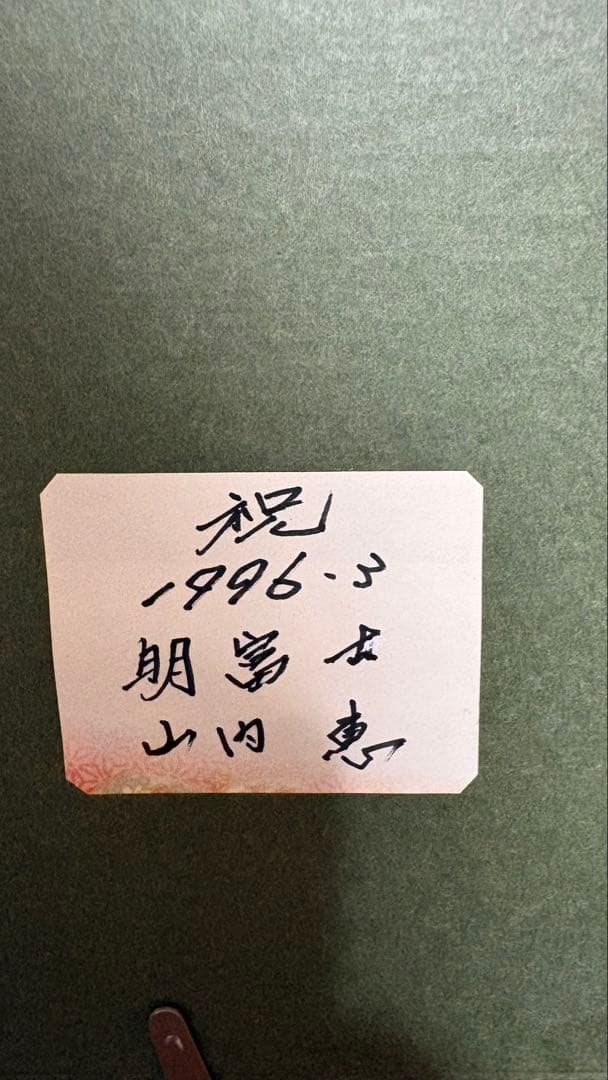 祝
1996.3
明富士
山内 恵